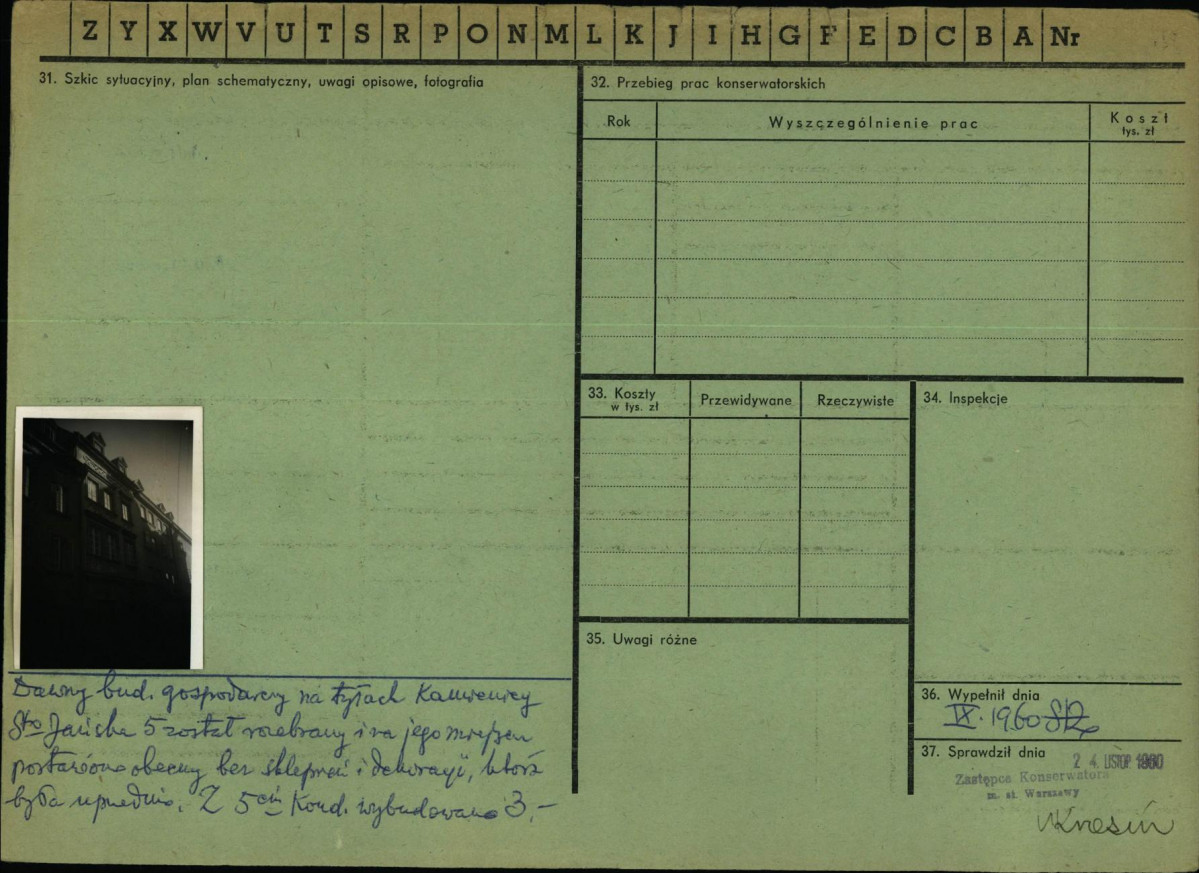 Z Y X W V U T S R P O N M L K J I H G F E D C B A Nr
31. Szkic sytuacyjny, plan schematyczny, uwagi opisowe, fotografia
32. Przebieg prac konserwatorskich
Rok
Wyszczególnienie prac
Koszt
tys. zł
33. Koszty
w tys. zł
Przewidywane
Rzeczywiste
34. Inspekcje
35. Uwagi różne
Dawny bud. gospodarczy na tyłach Kamienicy
Sto Jańska 5 został rozebrany i na jego miejscu
postawiono obecny bez sklepień i dekoracji, która
była uprzednio. Z 5 ciu Kond. wybudowano 3.–
36. Wypełnił dnia
IX. 1960
37. Sprawdził dnia
2 4. LISTOP 1960
Zastępca Konserwatora
m. st. Warszawy